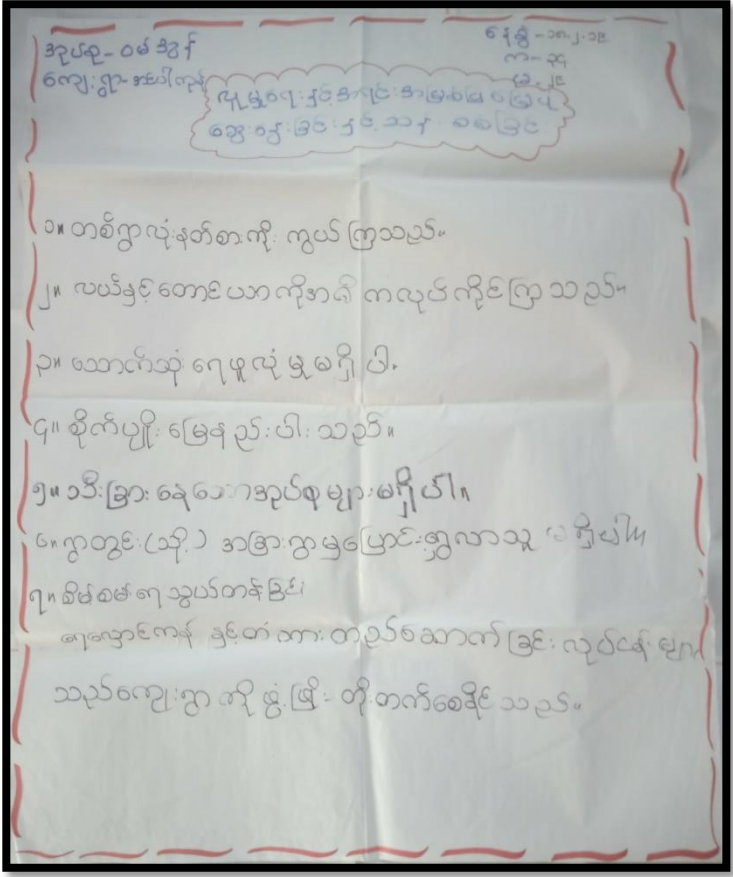 အုပ်စု - ဝမ်အွန်
ကျေးရွာ -
နေ့စွဲ - ၁၈.၂.၁၉
ကျ - ၁၅
မ - ၂၉
လူမှုရေးနှင့်အရင်းအမြစ်မြေပုံ
ဆွေးနွေးခြင်းနှင့်သန့်စစ်ခြင်း
၁။ တစ်ရွာလုံးနတ်စားကိုးကွယ်ကြသည်။
၂။ လယ်နှင့်တောင်ယာကိုအဓိကလုပ်ကိုင်ကြသည်။
၃။ သောက်သုံးရေဖူလုံမှုမရှိပါ.
၄။ စိုက်ပျိုးမြေနည်းပါးသည်။
၅။ သီးခြားနေသောအုပ်စုများမရှိပါ။
၆။ ရွာတွင်း (သို့) အခြားရွာမှပြောင်းရွှေ့လာသူ မရှိပါ။
၇။ စိမ့်စမ်းရေသွယ်တန်းခြင်း၊
ရေလှောင်ကန် နှင့်တံတားတည်ဆောက်ခြင်းလုပ်ငန်းများ
သည်ကျေးရွာကိုဖွံ့ဖြိုးတိုးတက်စေနိုင်သည်။